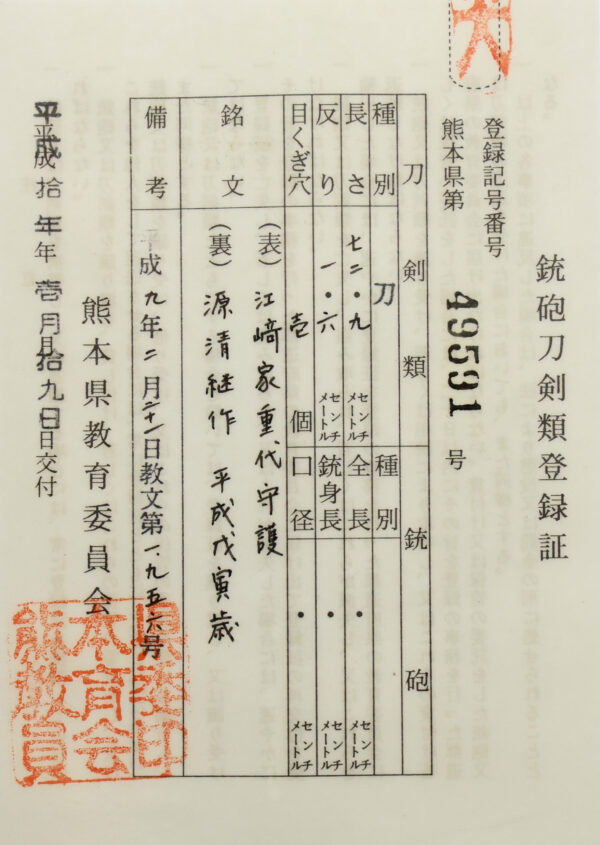 銃砲刀剣類登録証
登録記号番号
熊本県第 49591 号
刀剣類
銃砲
種別 刀
種別
長さ 七二・九 センチメートル
全長 ・ センチメートル
反り 一・六 センチメートル
銃身長 ・ センチメートル
目くぎ穴 壱 個
口径 ・ センチメートル
銘文
(表) 江﨑家重代守護
(裏) 源清継作 平成戊寅歳
備考
平成九年二月二十一日教文第一、九五六号
熊本県教育委員会
平成 平成拾年年壱月月拾九日日交付
熊本県教育委員会印